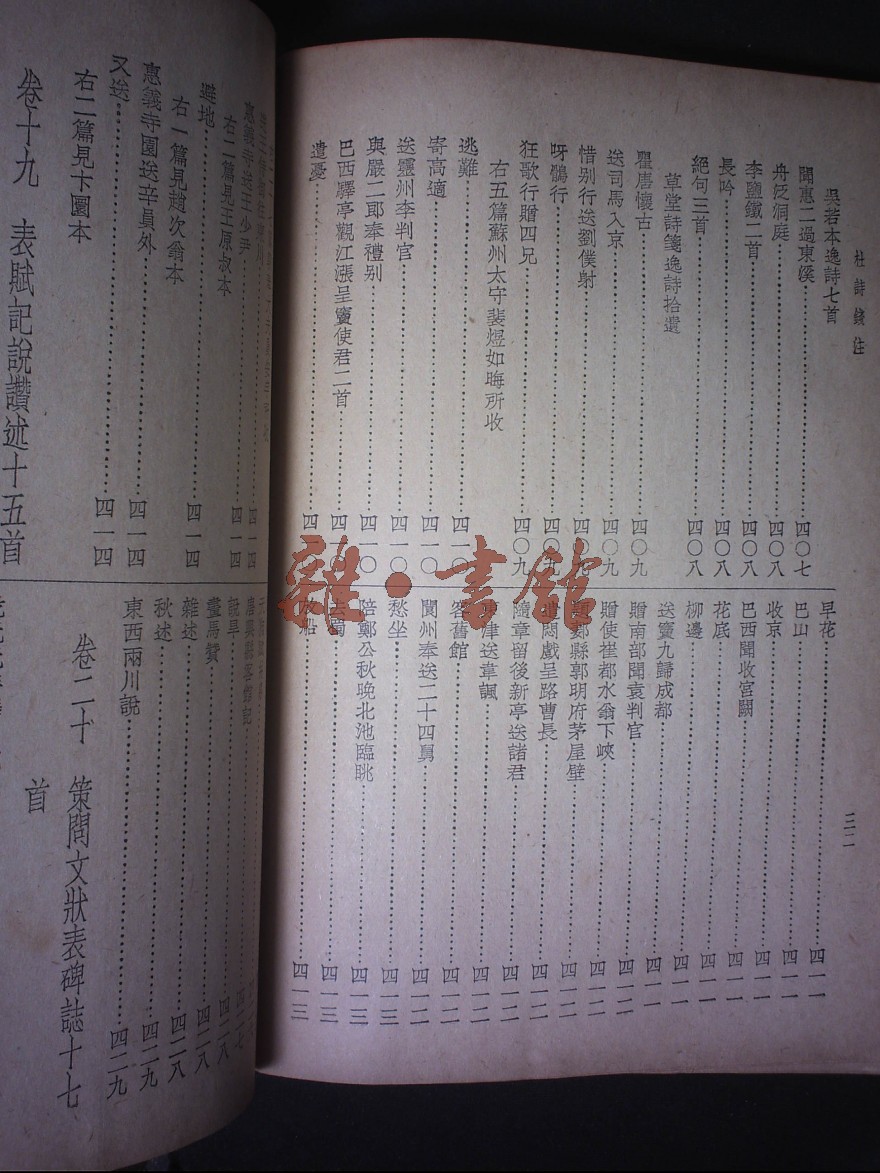 杜詩錢注
三二
吳若本逸詩七首
聞惠二過東溪 四〇七
舟泛洞庭 四〇八
李鹽鐵二首 四〇八
長吟 四〇八
絕句三首 四〇八
草堂詩箋逸詩拾遺
瞿唐懷古 四〇九
送司馬入京 四〇九
惜别行送劉僕射 四〇九
呀鶻行 四〇九
狂歌行贈四兄 四〇九
右五篇蘇州太守裴煜如晦所收
逃難 四一〇
寄高適 四一〇
送靈州李判官 四一〇
與嚴二郎奉禮别 四一〇
巴西驛亭觀江漲呈竇使君二首 四一〇
遣憂
早花 四一一
巴山 四一一
收京 四一一
巴西聞收宮闕 四一一
花底 四一一
柳邊 四一一
送竇九歸成都 四一一
贈南部聞袁判官 四一一
贈使崔都水翁下峽 四一二
郪縣郭明府茅屋壁 四一二
悶戲呈路曹長 四一二
隨章留後新亭送諸君 四一二
津送韋諷 四一二
客舊館 四一二
閬州奉送二十四舅 四一二
愁坐 四一三
陪鄭公秋晚北池臨眺 四一三
去蜀 四一三
放船 四一三
雜·書館
惠義寺送王少尹 四一四
右二篇見王原叔本
避地 四一四
右一篇見趙次翁本
惠義寺園送辛員外 四一四
又送 四一四
右二篇見卞圜本
卷十九 表賦記說讚述十五首
說旱 四二八
畫馬贊 四二八
雜述 四二八
秋述 四二九
東西兩川說 四二九
卷二十 策問文狀表碑誌十七
首